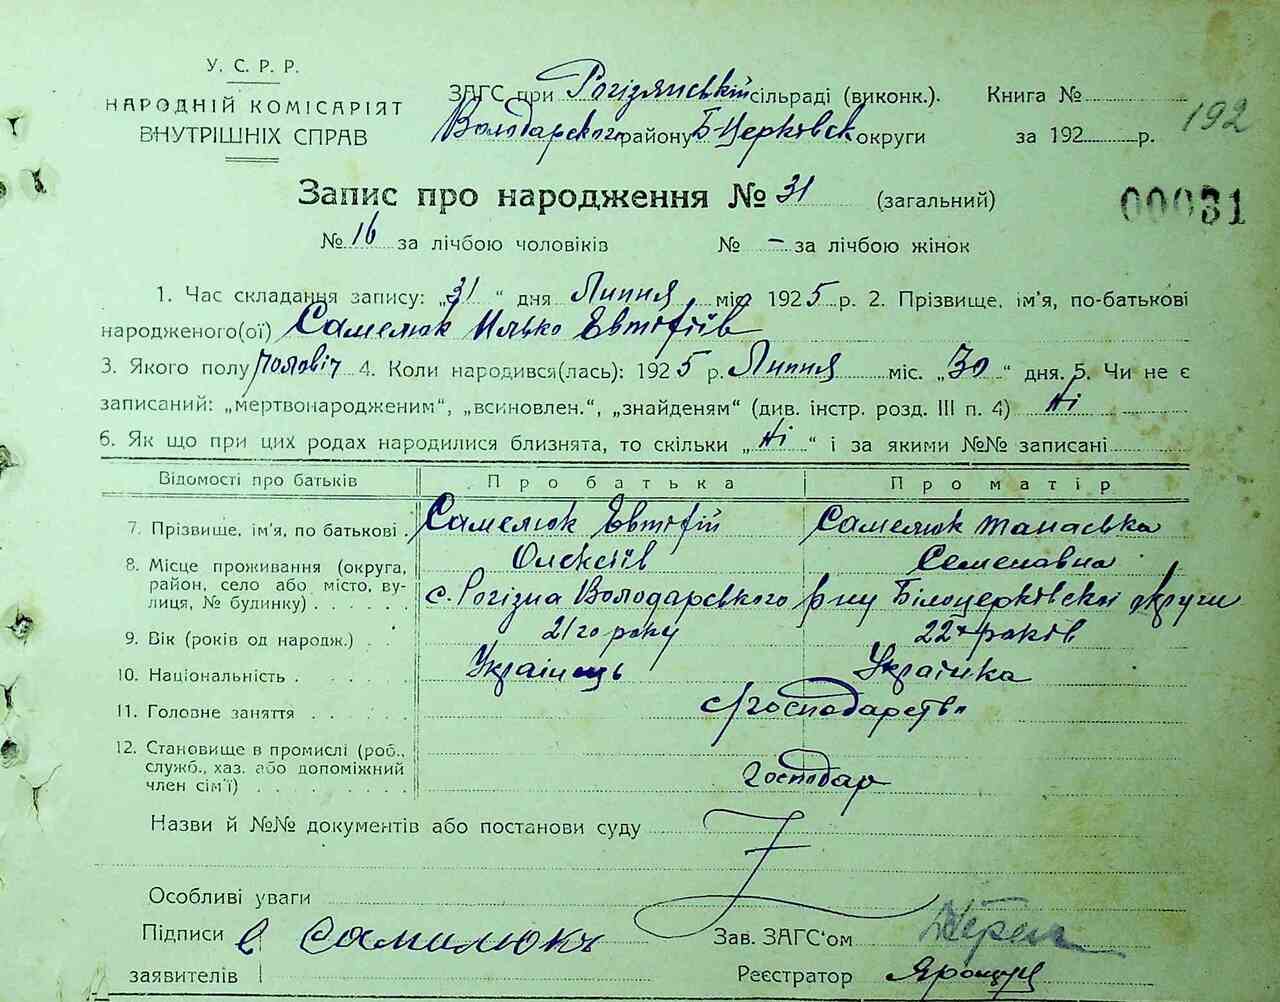 У. С. Р. Р.
НАРОДНІЙ КОМІСАРІЯТ
ВНУТРІШНІХ СПРАВ
ЗАГС при Рогізянській сільраді (виконк.). Книга №
Володарского району Б-Церковск округи за 192 р.
192
Запис про народження № 31 (загальний)
00031
№ 16 за лічбою чоловіків № – за лічбою жінок
1. Час складання запису: „31“ дня Липня міс. 1925 р. 2. Прізвище, ім'я, по-батькові
народженого(ої) Самелюк Илько Евтофіїв
3. Якого полу 4. Коли народився(лась): 1925 р. Липня міс. „30“ дня. 5. Чи не є
записаний: „мертвонародженим“, „всиновлен.“, „знайденям“ (див. інстр. розд. III п. 4) Ні
6. Як що при цих родах народилися близнята, то скільки „Ні“ і за якими №№ записані
Відомості про батьків Про батька Про матір
7. Прізвище, ім'я, по батькові Самелюк Евтофій Самелюк Танаська
Олексіїв Семеновна
8. Місце проживання (округа,
район, село або місто, ву-
лиця, № будинку) с. Рогізна Володарського р-ну Білоцерковської округи
9. Вік (років од народж.) 21го року 22х років
10. Національність Українець Українка
11. Головне заняття с/господарство
12. Становище в промислі (роб.,
служб., хаз. або допоміжний
член сім'ї) господар
Назви й №№ документів або постанови суду
Особливі уваги
Підписи Самилюкъ Зав. ЗАГС'ом
заявителів Реєстратор